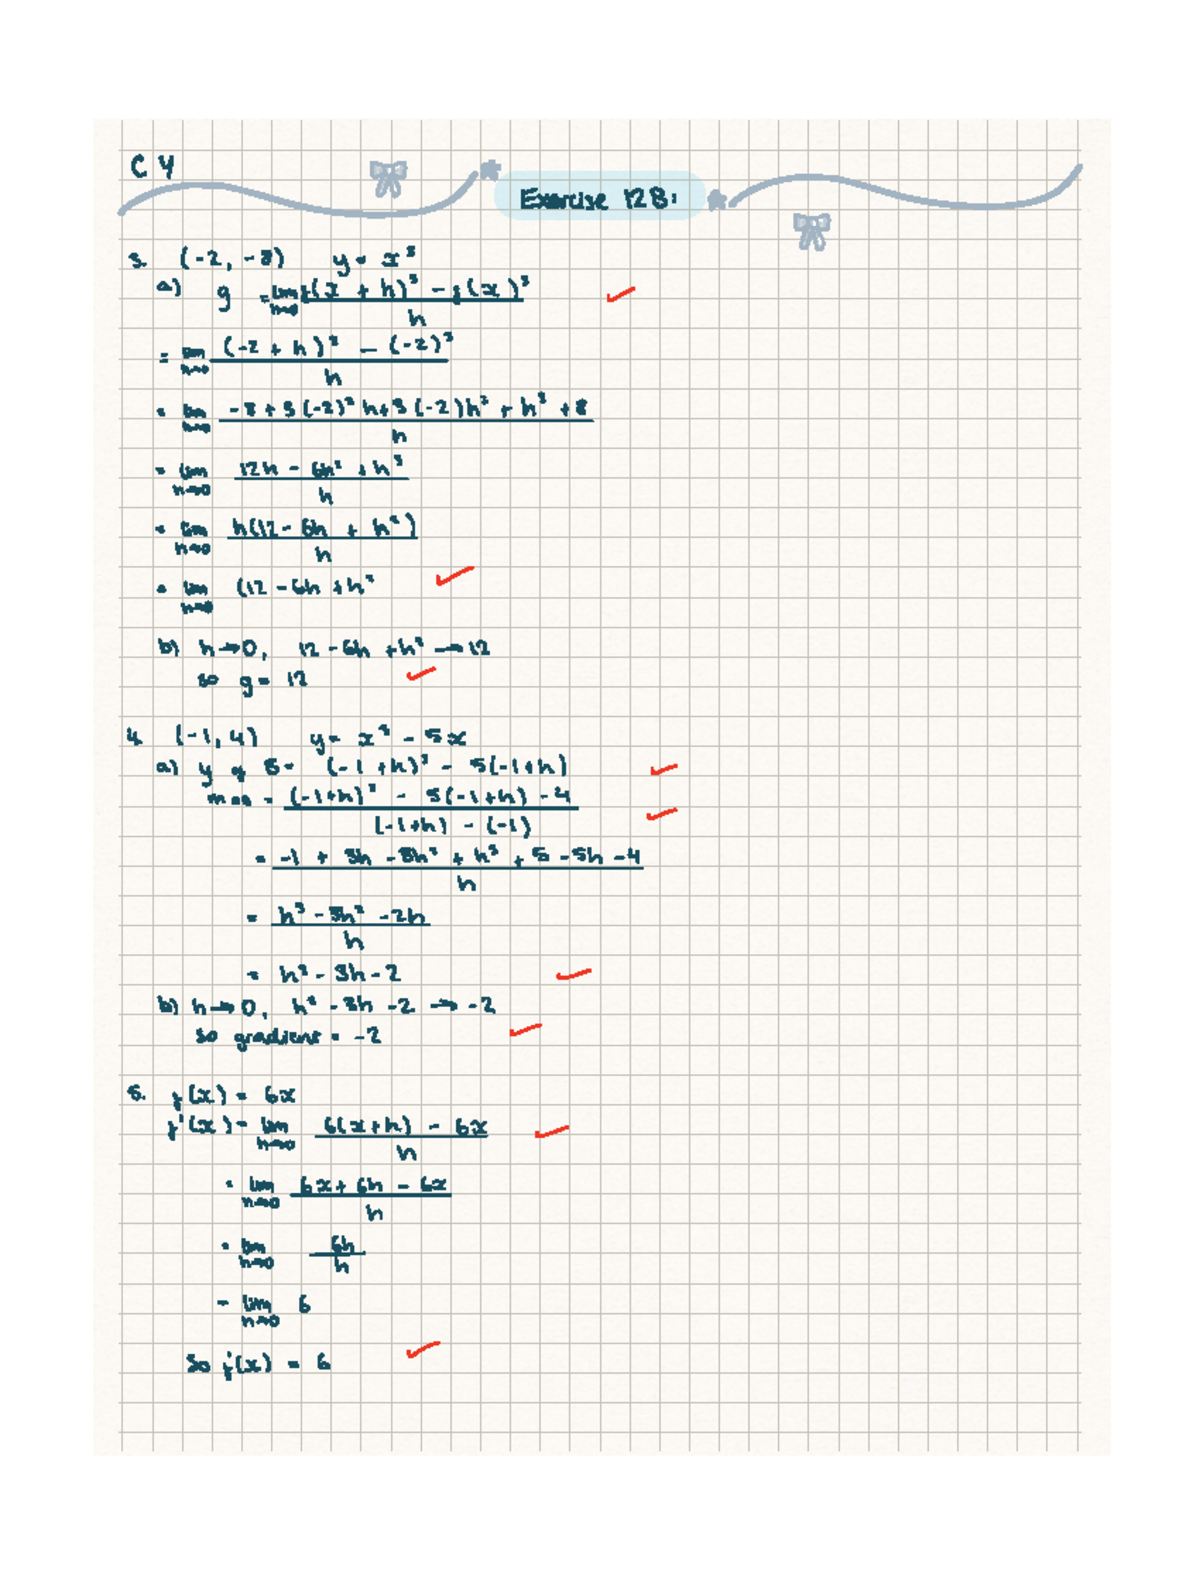 C4
Exercise 12B:
3. (-2, -8) y = x³
a) g = lim h→0 f(x + h)³ - f(x)³ / h
= lim h→0 (-2 + h)³ - (-2)³ / h
= lim h→0 -8 + 3(-2)² h + 3(-2)h² + h³ + 8 / h
= lim h→0 12h - 6h² + h³ / h
= lim h→0 h(12 - 6h + h²) / h
= lim h→0 (12 - 6h + h²
b) h→0, 12 - 6h + h² → 12
so g = 12
4. (-1, 4) y = x³ - 5x
a) y of B = (-1 + h)³ - 5(-1+h)
= (-1+h)³ - 5(-1+h) - 4 / (-1+h) - (-1)
= -1 + 3h - 3h² + h³ + 5 - 5h - 4 / h
= h³ - 3h² - 2h / h
= h² - 3h - 2
b) h→0, h² - 3h - 2 → -2
so gradient = -2
5. f(x) = 6x
f'(x) = lim h→0 6(x+h) - 6x / h
= lim h→0 6x + 6h - 6x / h
= lim h→0 6h / h
= lim h→0 6
So f'(x) = 6